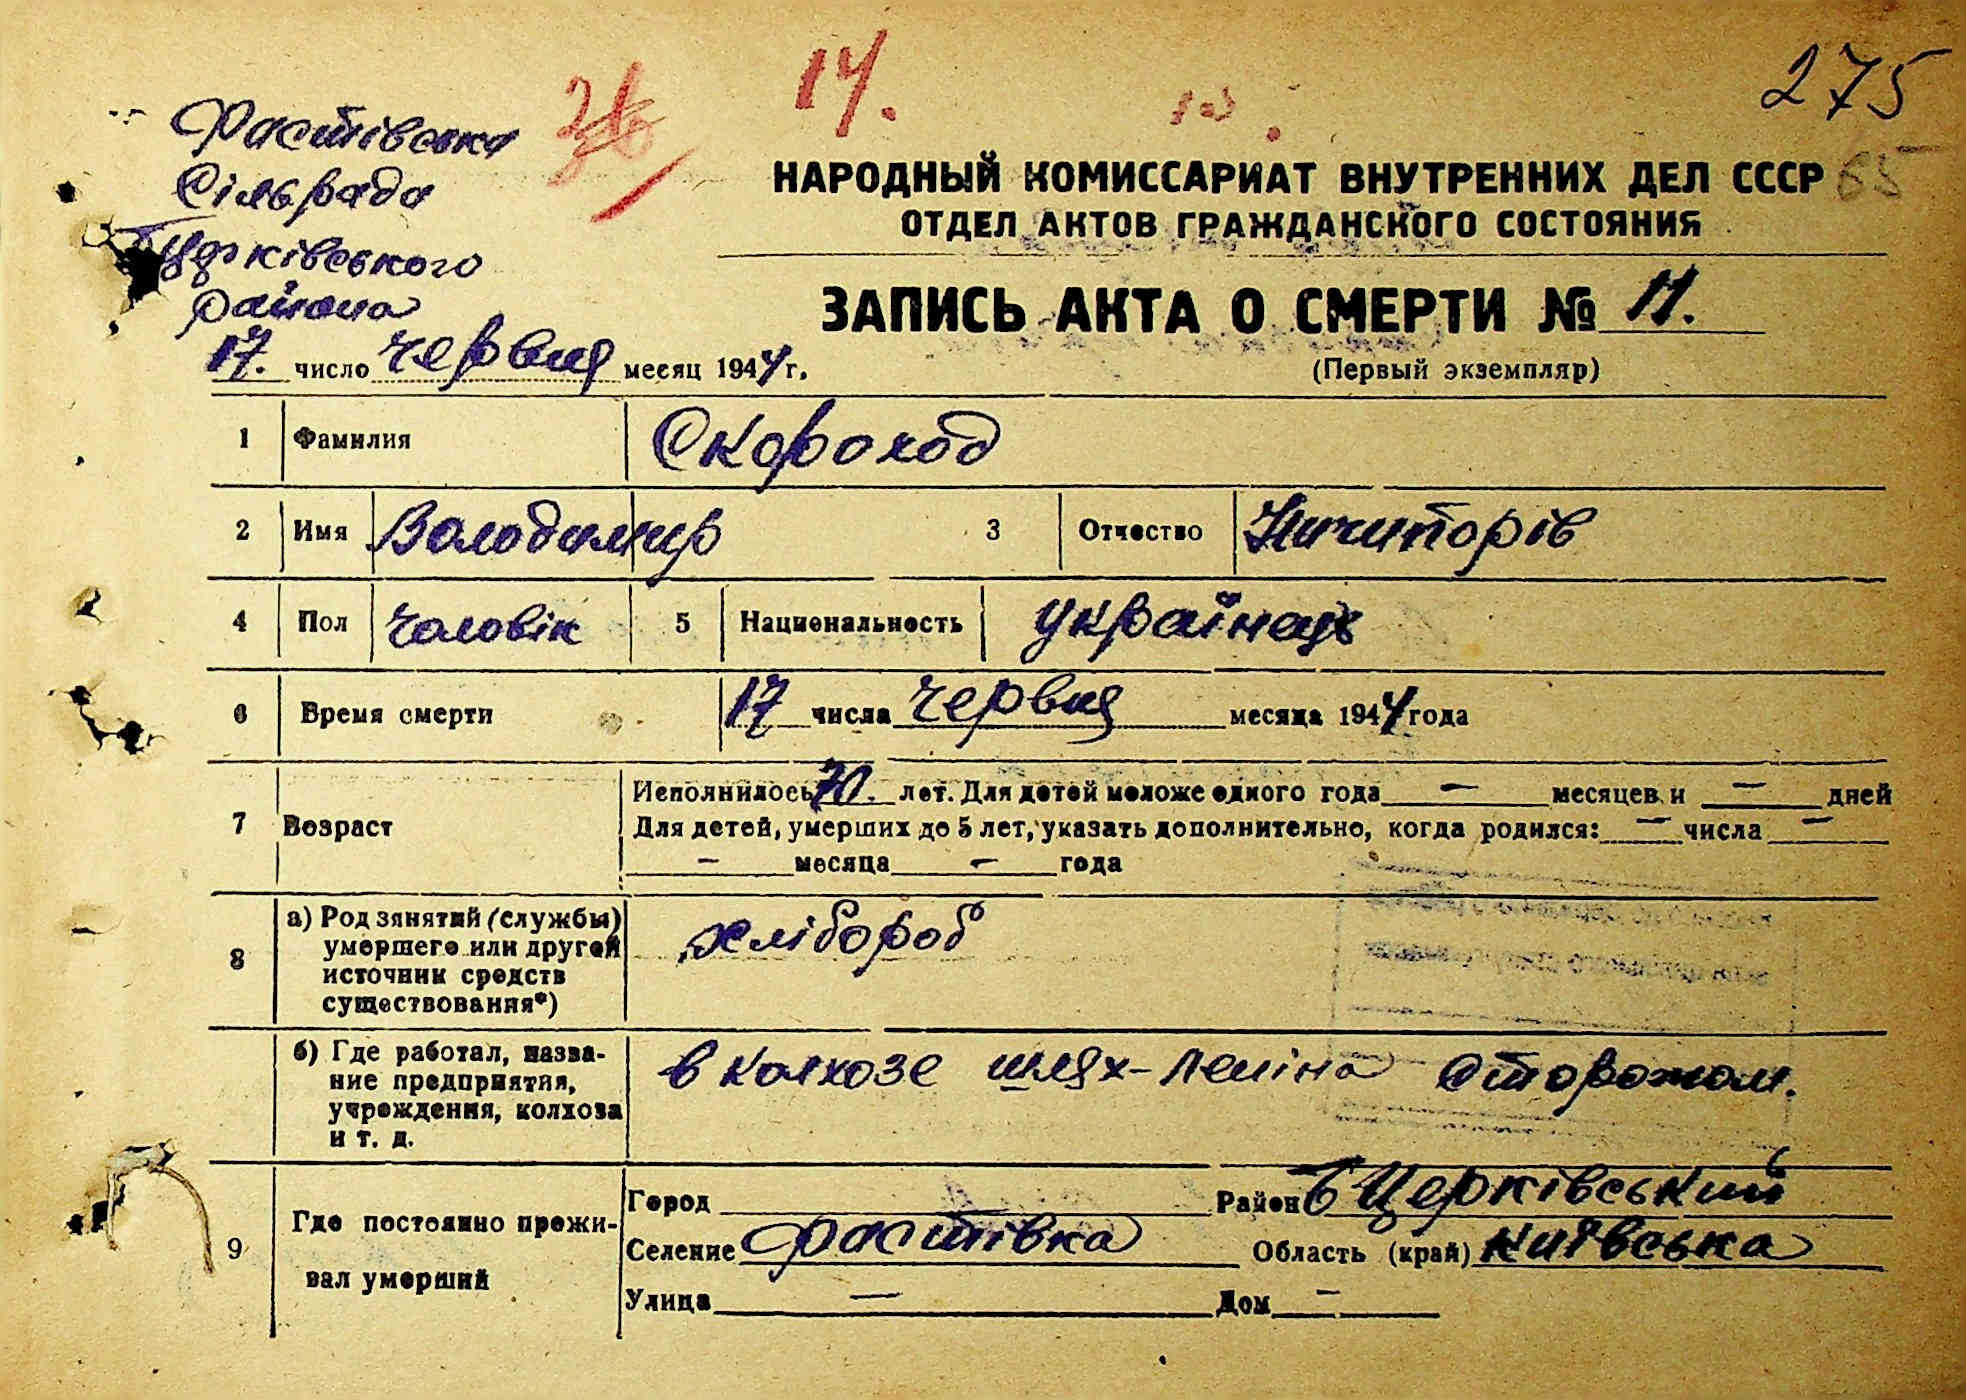 275
14.
65
Фастівська
Сільрада
БЦерківського
района
НАРОДНЫЙ КОМИССАРИАТ ВНУТРЕННИХ ДЕЛ СССР
ОТДЕЛ АКТОВ ГРАЖДАНСКОГО СОСТОЯНИЯ
ЗАПИСЬ АКТА О СМЕРТИ № 11.
17. число червня месяц 1944 г.
(Первый экземпляр)
1 Фамилия Скороход
2 Имя Володимир 3 Отчество Ничипорів
4 Пол чоловік 5 Национальность українець
6 Время смерти 17 числа червня месяца 1944 года
7 Возраст
Исполнилось 70. лет. Для детей моложе одного года — месяцев и — дней
Для детей, умерших до 5 лет, указать дополнительно, когда родился: — числа —
— месяца — года
8 а) Род занятий (службы)
умершего или другой
источник средств
существования*)
хлібороб
б) Где работал, назва-
ние предприятия,
учреждения, колхоза
и т. д.
в колхозе шлях-Леніна сторожом.
9 Где постоянно прожи-
вал умерший
Город Район Б Церківський
Селение Фастівка Область (край) Київська
Улица — Дом —